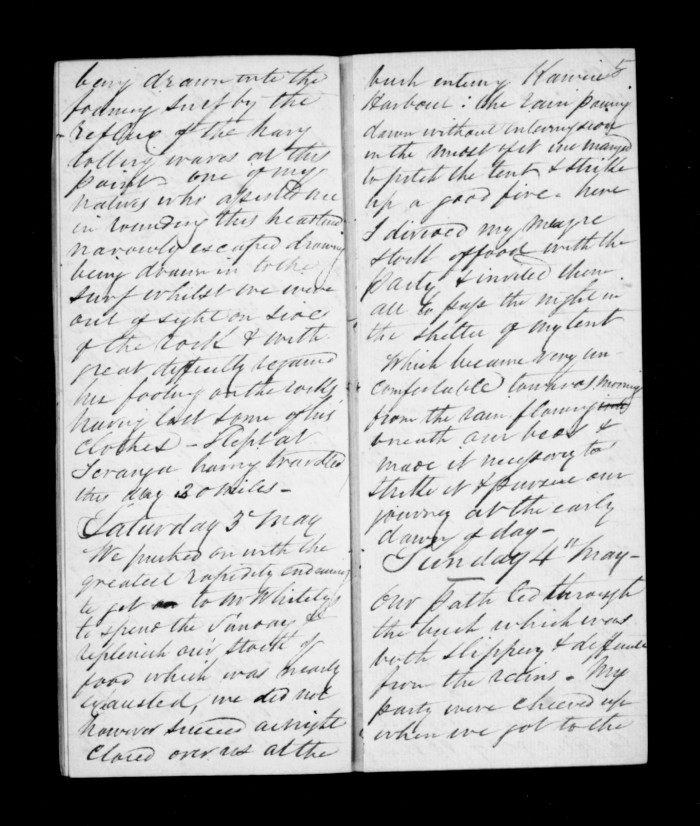 being drawn into the
foaming surf by the
reflux of the heavy
rolling waves at this
point - one of my
natives who assisted me
in rounding this headland
narrowly escaped drowning
being drawn in to the
surf whilst we were
out of sight on side
of the rock & with
great difficulty regained
his footing on the rocks
having lost some of his
clothes - slept at
having travelled
this day 20 miles -
Saturday 3d May
We pushed on with the
greatest rapidity endeavouring
to get to Mr Whiteley's
to spend the Sunday &
replenish our stock of
food which was nearly
exhausted, we did not
however succeed as night
closed over us at the
5
bush entering Kawia
Harbour: the rain pouring
down without intermission
in the midst of it we managed
to pitch the tent & strike
up a good fire - here
I divided my meagre
stock of food with the
Party & invited them
all to pass the night in
the shelter of my tent
Which became very un-
comfortable towards morning
from the rain flowing
beneath our beds &
made it necessary to
strike it & pursue our
journey at the early
dawn of day -
Sunday 4th May -
Our Path led through
the bush which was
both slippery & difficult
from the rains - My
party were cheered up
when we got to the